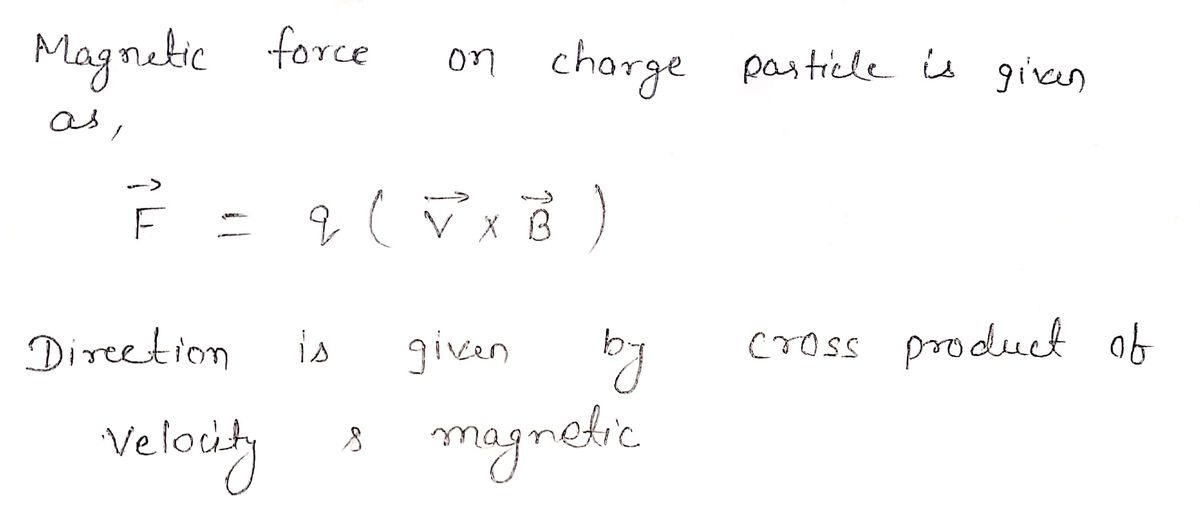 Magnetic force on charge particle is given
as,
$\vec{F} = q ( \vec{V} \times \vec{B} )$
Direction is given by cross product of
velocity & magnetic